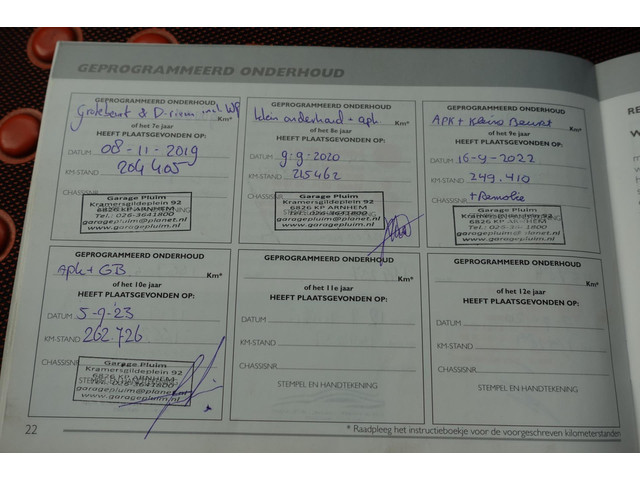 GEPROGRAMMEERD ONDERHOUD
GEPROGRAMMEERD ONDERHOUD
Grote beurt & D-riem incl. WP Km*
of het 7e jaar
HEEFT PLAATSGEVONDEN OP:
DATUM 08-11-2019
KM-STAND 204405
CHASSISNR
Garage Pluim
Kramersgildeplein 92
6826 KP ARNHEM
Tel.: 026-3641800
garagepluim@planet.nl
www.garagepluim.nl
GEPROGRAMMEERD ONDERHOUD
klein onderhoud + apk Km*
of het 8e jaar
HEEFT PLAATSGEVONDEN OP:
DATUM 9-9-2020
KM-STAND 215462
CHASSISNR
Garage Pluim
Kramersgildeplein 92
6826 KP ARNHEM
Tel.: 026-3641800
garagepluim@planet.nl
www.garagepluim.nl
GEPROGRAMMEERD ONDERHOUD
APK + Kleine Beurt Km*
of het 9e jaar
HEEFT PLAATSGEVONDEN OP:
DATUM 16-9-2022
KM-STAND 249.410
CHASSISNR
Garage Pluim
Kramersgildeplein 92
6826 KP ARNHEM
Tel.: 026-3641800
garagepluim@planet.nl
www.garagepluim.nl
GEPROGRAMMEERD ONDERHOUD
Apk + GB Km*
of het 10e jaar
HEEFT PLAATSGEVONDEN OP:
DATUM 5-9-'23
KM-STAND 262.726
CHASSISNR
Garage Pluim
Kramersgildeplein 92
6826 KP ARNHEM
026-3641800
garagepluim@planet.nl
www.garagepluim.nl
GEPROGRAMMEERD ONDERHOUD
Km*
of het 11e jaar
HEEFT PLAATSGEVONDEN OP:
DATUM
KM-STAND
CHASSISNR
STEMPEL EN HANDTEKENING
GEPROGRAMMEERD ONDERHOUD
Km*
of het 12e jaar
HEEFT PLAATSGEVONDEN OP:
DATUM
KM-STAND
CHASSISNR
STEMPEL EN HANDTEKENING
22
* Raadpleeg het instructieboekje voor de voorgeschreven kilometerstanden